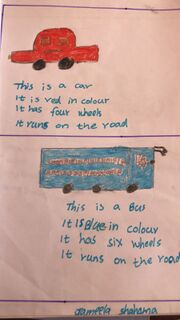 This is a car
It is red in colour
It has four wheels
It runs on the road
This is a Bus
It is Blue in colour
It has six wheels
It runs on the road
Jameela shahama